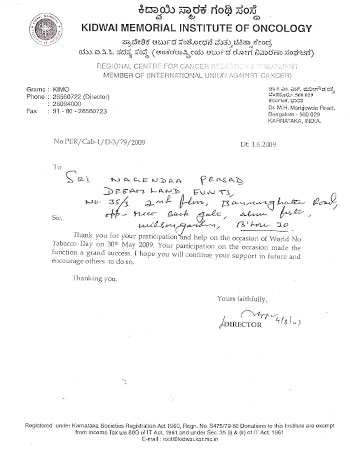 ಕಿದ್ವಾಯಿ ಸ್ಮಾರಕ ಗಂಥಿ ಸಂಸ್ಥೆ
KIDWAI MEMORIAL INSTITUTE OF ONCOLOGY
REGIONAL CENTRE FOR CANCER RESEARCH & TREATMENT
MEMBER OF (INTERNATIONAL UNION AGAINST CANCER)
Grams : KIMO
Phone : 26560722 (Director)
: 26094000
Fax : 91 - 80 - 26560723
Dr. M.H. Marigowda Road,
Bangalore - 560 029
KARNATAKA, INDIA.
No.PER/Cab-1/D-3/79/2009
Dt: 1.6.2009
To
SRI NAGENDRA PRASAD
DREAM LAND EVNTS
No. 35/1 2nd floor, Bannerghatta Road,
opp- back gate, above
B'lore 30
Sir,
Thank you for your participation and help on the occasion of World No
Tobacco Day on 30th May 2009. Your participation on the occasion made the
function a grand success. I hope you will continue your support in future and
encourage others to do so.
Thanking you.
Yours faithfully,
DIRECTOR
Registered under Karnataka Societies Registration Act 1960, Regn. No. S475/79-80 Donations to this Institute are exempt
from Income Tax u/s 80G of IT Act, 1961 and under Sec. 35 (i) & (ii) of IT Act, 1961